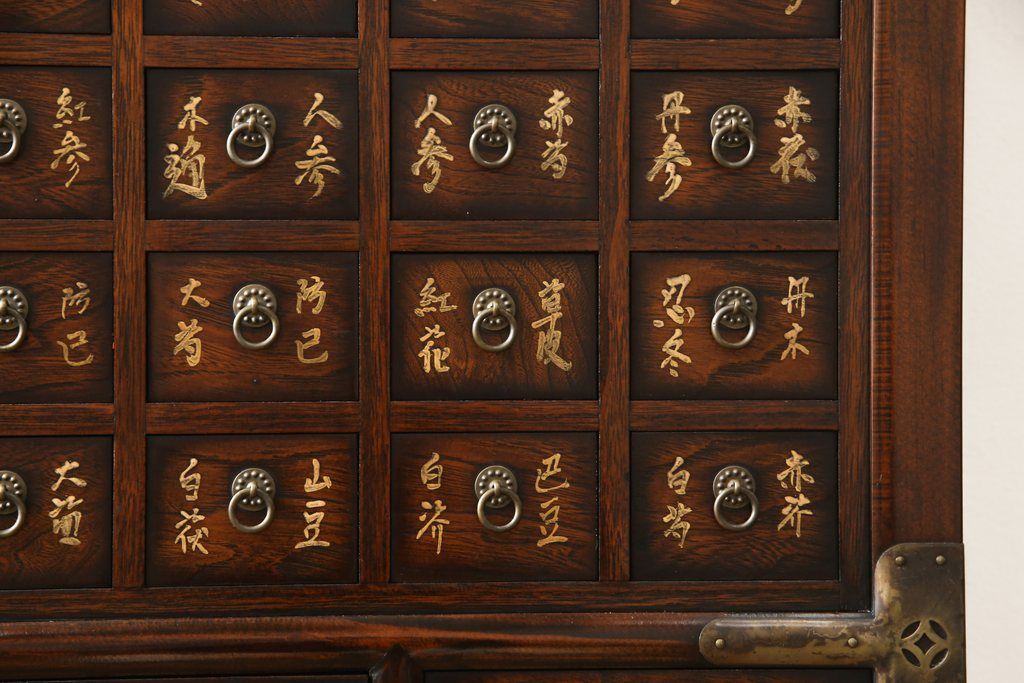 紅参
木通
人参
人参
赤芍
丹参
赤茯
防已
大芍
防已
紅花
草皮
忍冬
丹木
大黄
白茯
山豆
白芥
巴豆
白芍
赤芥